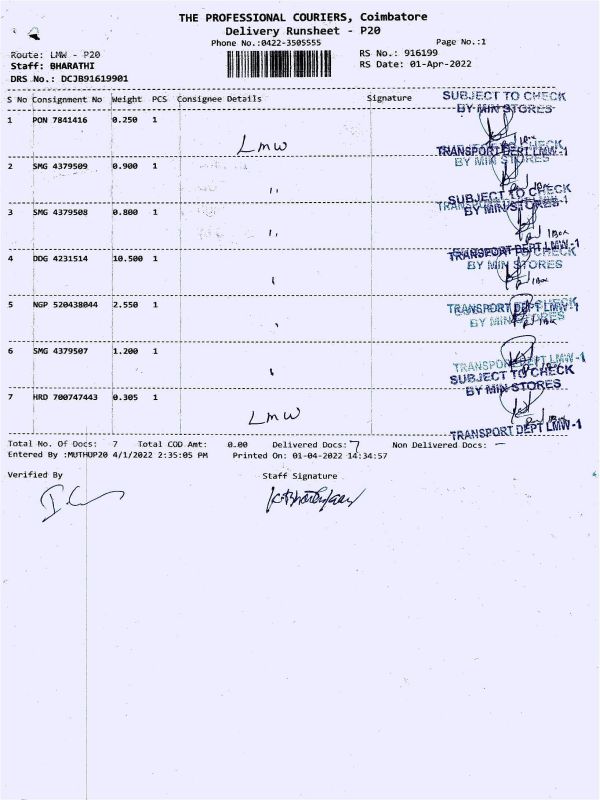 THE PROFESSIONAL COURIERS, Coimbatore
Delivery Runsheet - P20
Phone No.:0422-3505555 Page No.:1
Route: LMW - P20 RS No.: 916199
Staff: BHARATHI RS Date: 01-Apr-2022
DRS No.: DCJB91619901
S No Consignment No Weight PCS Consignee Details Signature SUBJECT TO CHECK
BY MIN STORES
1 PON 7841416 0.250 1
LMW 1Box
TRANSPORT DEPT LMW-1
BY MIN STORES
2 SMG 4379509 0.900 1
" 1Box
SUBJECT TO CHECK
TRANSPORT
BY MIN STORES
3 SMG 4379508 0.800 1
" 1Box
TRANSPORT DEPT LMW-1
4 DDG 4231514 10.500 1 BY MIN STORES
" 1Box
5 NGP 520438044 2.550 1 TRANSPORT DEPT LMW-1
BY MIN STORES
" 1Box
6 SMG 4379507 1.200 1
TRANSPORT DEPT LMW-1
" SUBJECT TO CHECK
BY MIN STORES
7 HRD 700747443 0.305 1
LMW 1Box
TRANSPORT DEPT LMW-1
Total No. Of Docs: 7 Total COD Amt: 0.00 Delivered Docs: 7 Non Delivered Docs: —
Entered By :MUTHUP20 4/1/2022 2:35:05 PM Printed On: 01-04-2022 14:34:57
Verified By Staff Signature